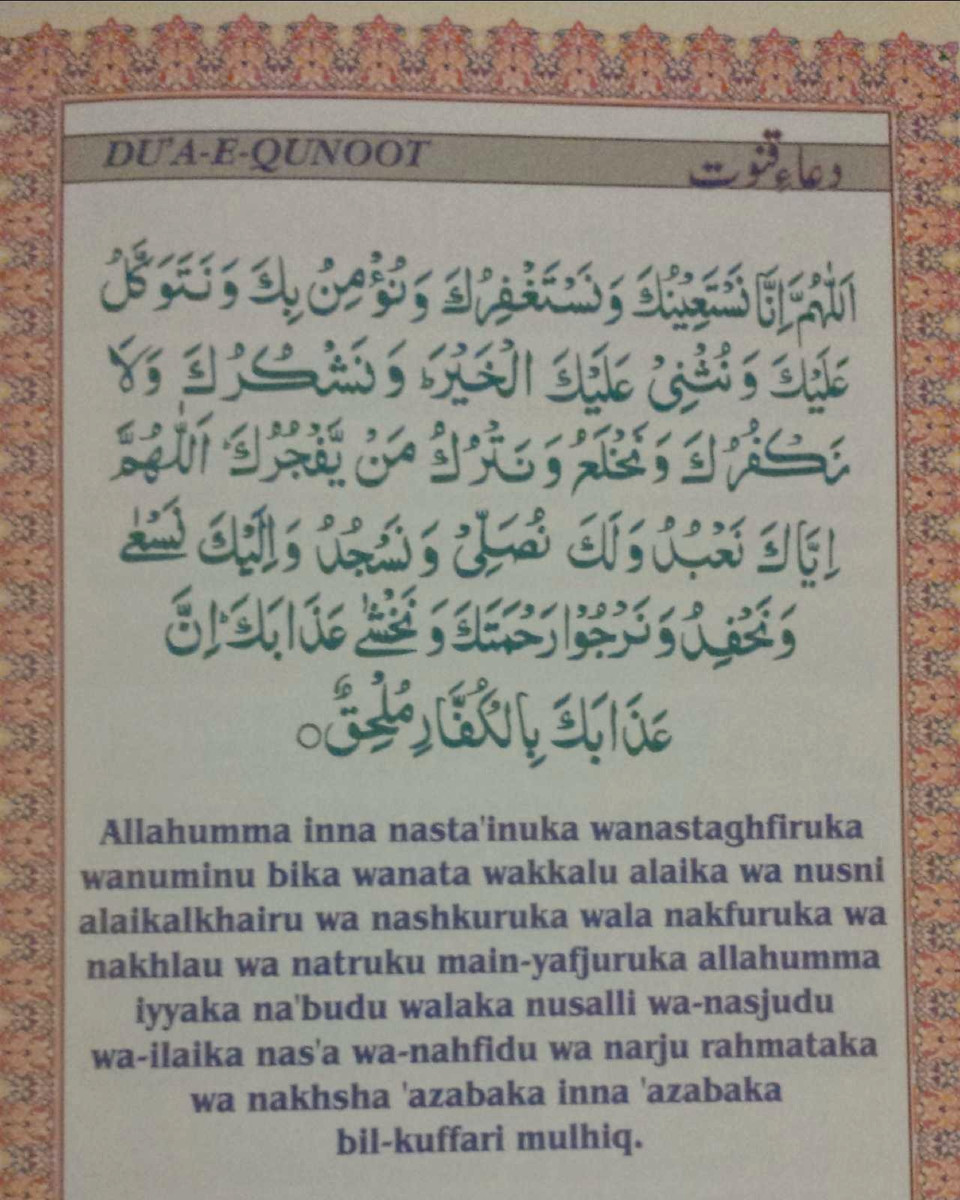 DU'A-E-QUNOOT
دعاءِ قنوت
اَللّٰهُمَّ اِنَّا نَسْتَعِيْنُكَ وَنَسْتَغْفِرُكَ وَنُؤْمِنُ بِكَ وَنَتَوَكَّلُ
عَلَيْكَ وَنُثْنِیْ عَلَيْكَ الْخَيْرَؕ وَنَشْكُرُكَ وَلَا
نَكْفُرُكَ وَنَخْلَعُ وَنَتْرُكُ مَنْ يَّفْجُرُكَؕ اَللّٰهُمَّ
اِيَّاكَ نَعْبُدُ وَلَكَ نُصَلِّیْ وَنَسْجُدُ وَاِلَيْكَ نَسْعٰی
وَنَحْفِدُ وَنَرْجُوْا رَحْمَتَكَ وَنَخْشٰی عَذَابَكَؕ اِنَّ
عَذَابَكَ بِالْكُفَّارِ مُلْحِقٌ ○
Allahumma inna nasta'inuka wanastaghfiruka
wanuminu bika wanata wakkalu alaika wa nusni
alaikalkhairu wa nashkuruka wala nakfuruka wa
nakhlau wa natruku main-yafjuruka allahumma
iyyaka na'budu walaka nusalli wa-nasjudu
wa-ilaika nas'a wa-nahfidu wa narju rahmataka
wa nakhsha 'azabaka inna 'azabaka
bil-kuffari mulhiq.